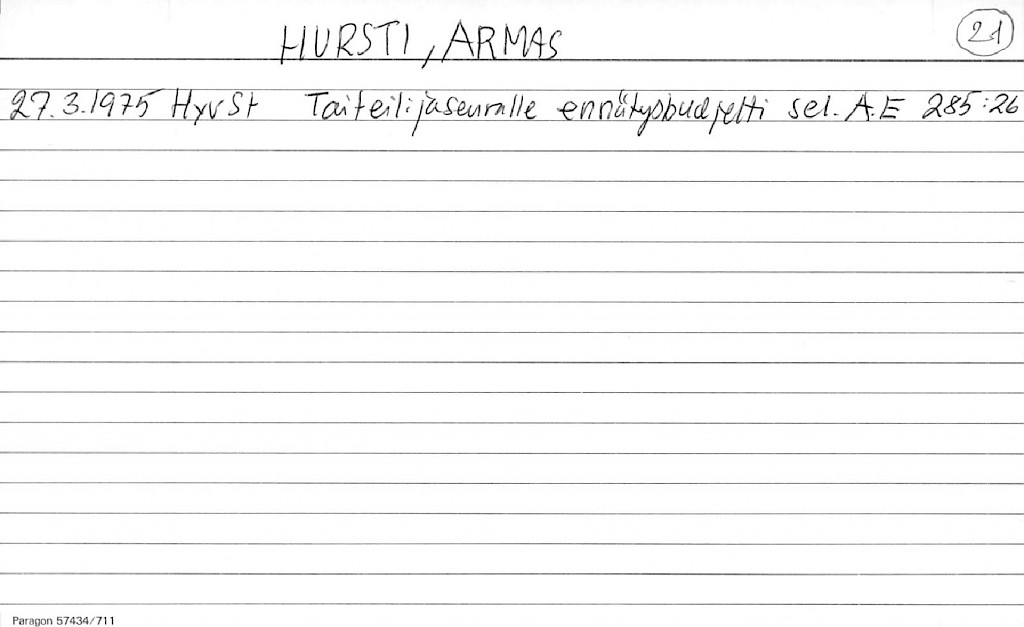 HURSTI, ARMAS
21
27.3.1975 HyvSt Taiteilijaseuralle ennätysbudjetti sel. A.E 285:26
Paragon 57434/711